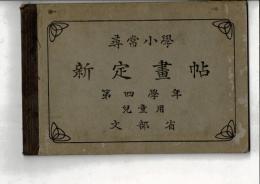 尋常小學
新定畫帖
第四學年
兒童用
文部省